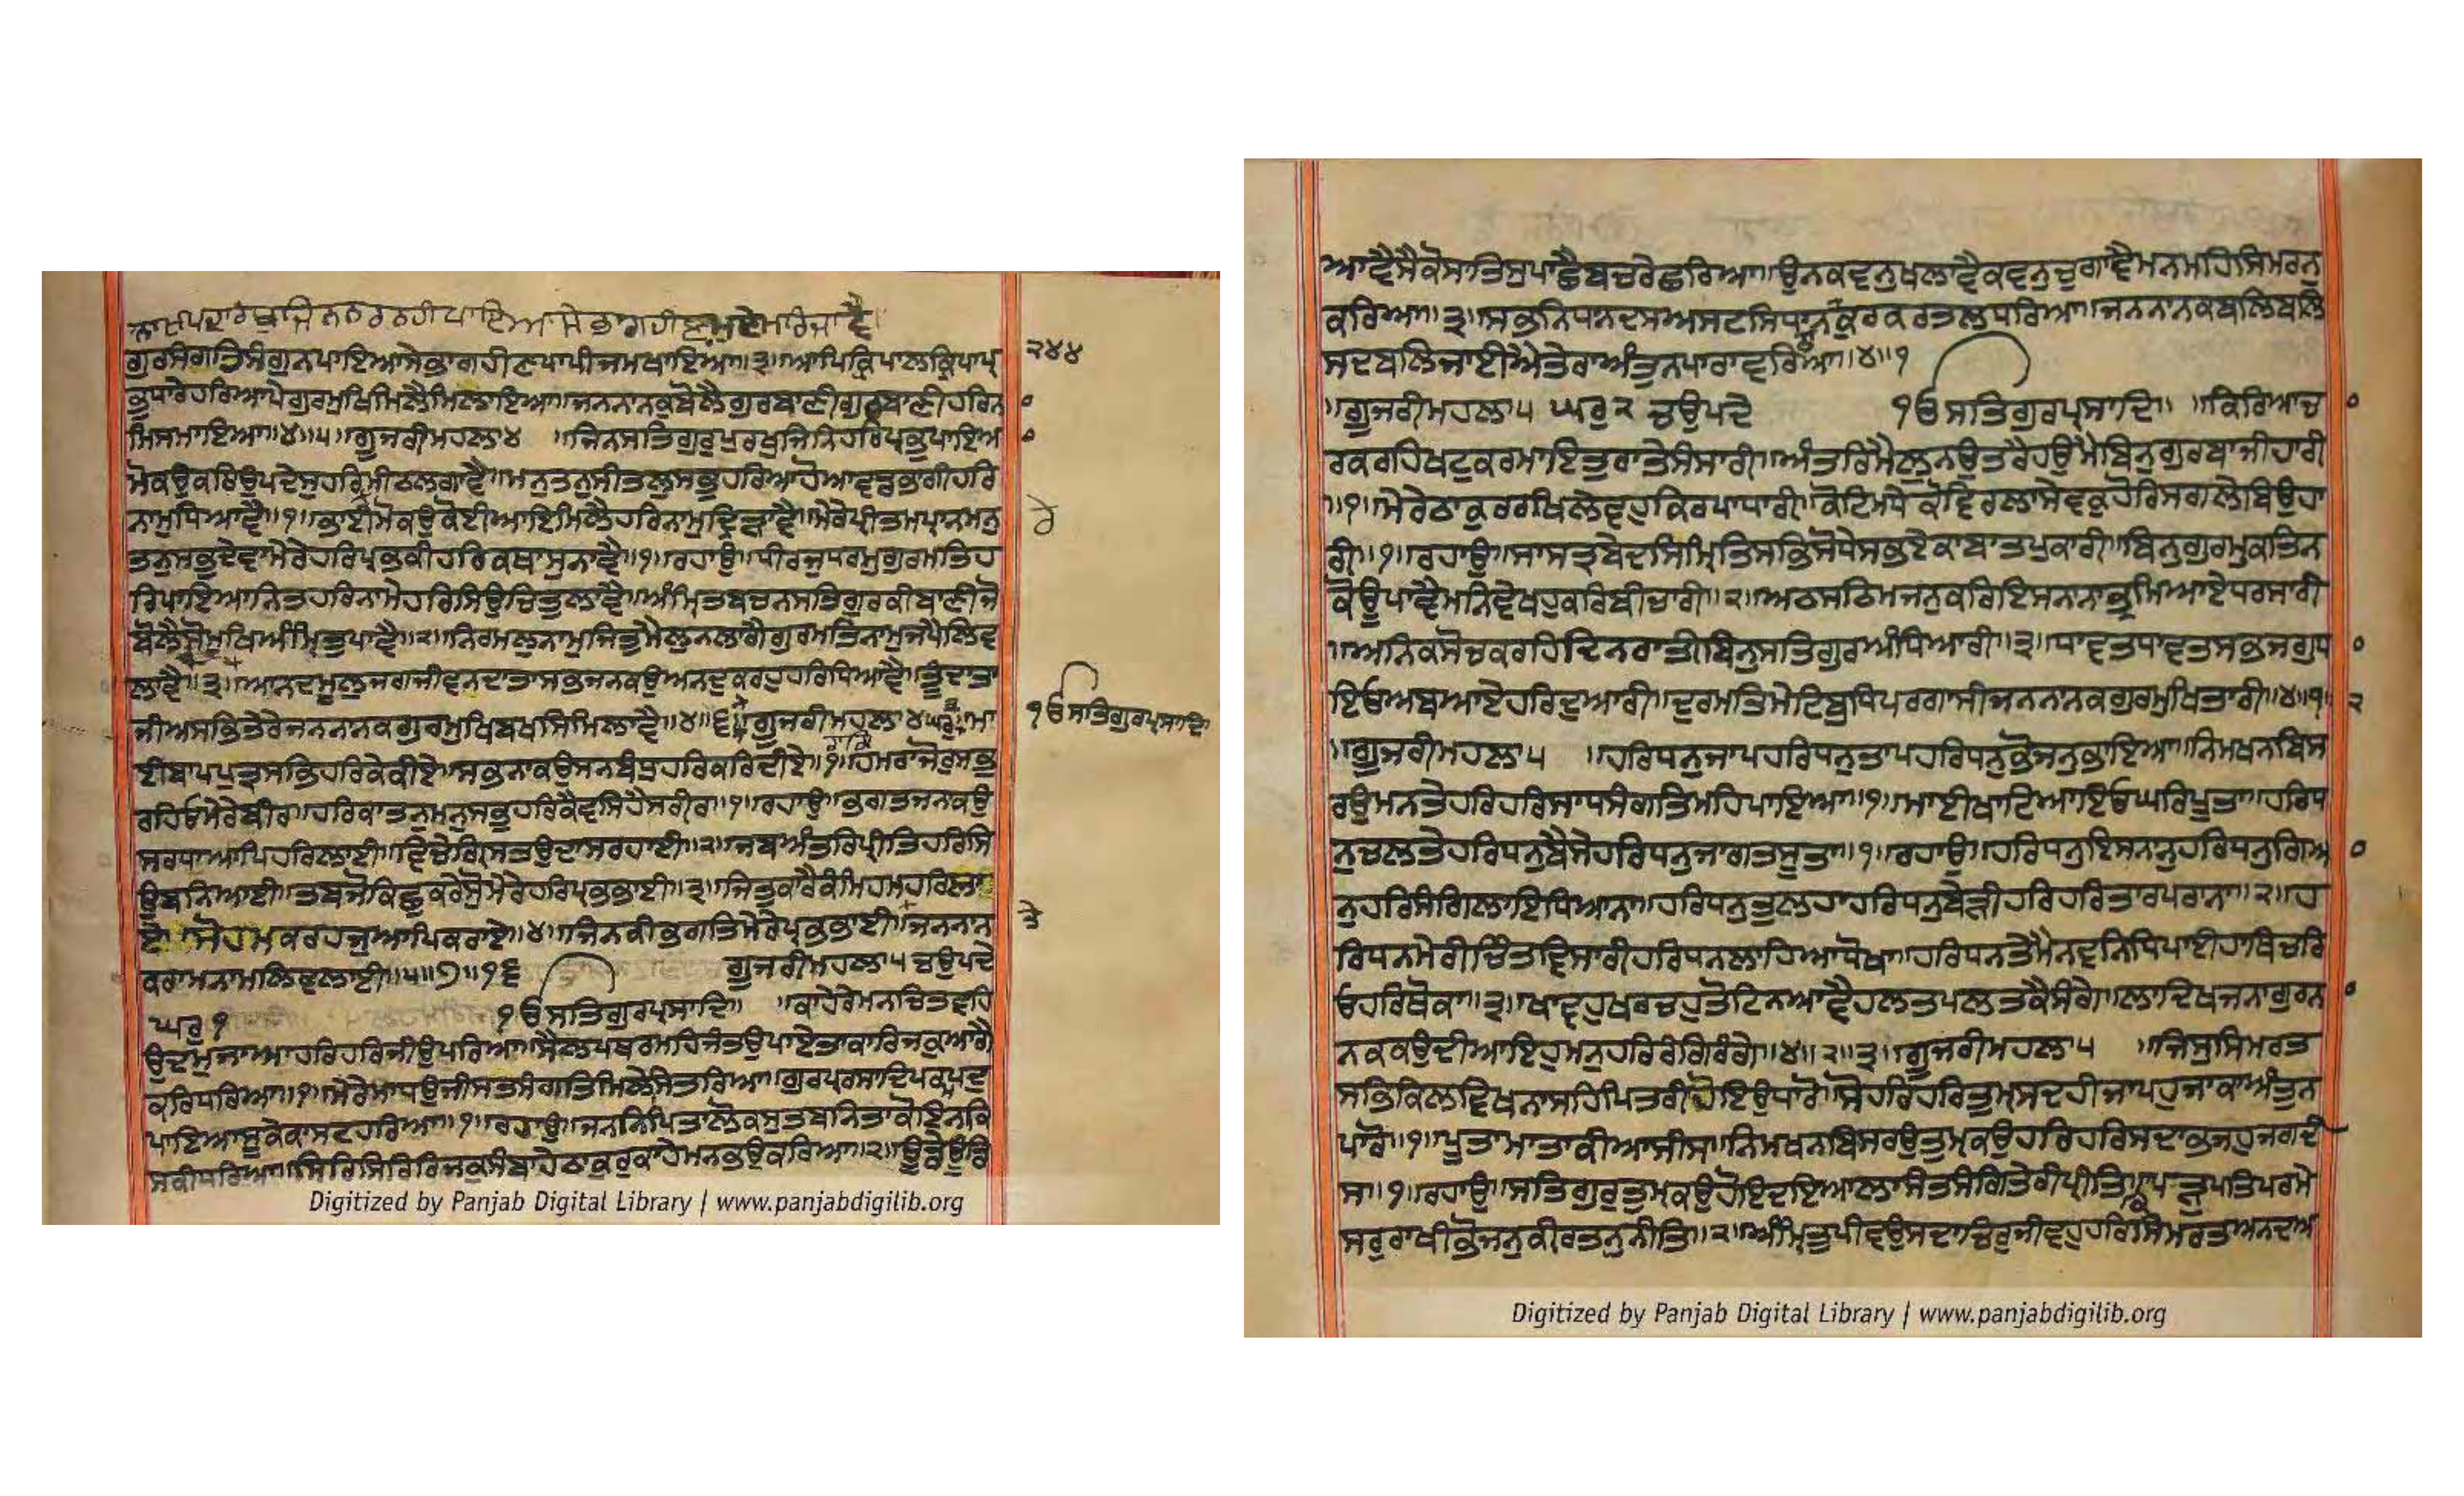 ਗੁਰਸੰਗਤਿਸੰਗੁਨਪਾਇਆਸੇਭਾਗਹੀਣਪਾਪੀਜਮਖਾਇਆ॥੩॥ਆਪਿਕ੍ਰਿਪਾਲਕ੍ਰਿਪਾਪ੍ਰ
੨੪੪
ਭੁਧਾਰੇਹਰਿਆਪੇਗੁਰਮੁਖਿਮਿਲੈਮਿਲਾਇਆ॥ਜਨਨਾਨਕੁਬੋਲੈਗੁਰਬਾਣੀਗੁਰਬਾਣੀਹਰਿਨਾ
ਮਿਸਮਾਇਆ॥੪॥੫॥ਗੂਜਰੀਮਹਲਾ੪ ॥ਜਿਨਸਤਿਗੁਰੁਪੁਰਖੁਜਿਨਿਹਰਿਪ੍ਰਭੁਪਾਇਆ
ਮੋਕਉਕਰਿਉਪਦੇਸੁਹਰਿਮੀਠਲਗਾਵੈ॥ਮਨੁਤਨੁਸੀਤਲੁਸਭੁਹਰਿਆਹੋਆਵਡਭਾਗੀਹਰਿ
ਨਾਮੁਧਿਆਵੈ॥੧॥ਭਾਈਮੋਕਉਕੋਈਆਇਮਿਲੈਹਰਿਨਾਮੁਦ੍ਰਿੜਾਵੈ॥ਮੇਰੇਪ੍ਰੀਤਮਪ੍ਰਾਨਮਨੁ
ਤਨੁਸਭੁਦੇਵਾਮੇਰੇਹਰਿਪ੍ਰਭਕੀਹਰਿਕਥਾਸੁਨਾਵੈ॥੧॥ਰਹਾਉ॥ਧੀਰਜੁਧਰਮੁਗੁਰਮਤਿਹ
ਰਿਪਾਇਆਨਿਤਹਰਿਨਾਮੈਹਰਿਸਿਉਚਿਤੁਲਾਵੈ॥ਅੰਮ੍ਰਿਤਬਚਨਸਤਿਗੁਰਕੀਬਾਣੀਜੋ
ਬੋਲੈਸੋਮੁਖਿਅੰਮ੍ਰਿਤੁਪਾਵੈ॥੨॥ਨਿਰਮਲੁਨਾਮੁਜਿਤੁਮੈਲੁਨਲਾਗੈਗੁਰਮਤਿਨਾਮੁਜਪੈਲਿਵ
ਲਾਵੈ॥੩॥ਆਨਦਮੂਲੁਜਗਜੀਵਨਦਾਤਾਸਭਜਨਕਉਅਨਦੁਕਰਹੁਹਰਿਧਿਆਵੈ॥ਤੂੰਦਾਤਾ
ਜੀਅਸਭਿਤੇਰੇਜਨਨਾਨਕਗੁਰਮੁਖਿਬਖਸਿਮਿਲਾਵੈ॥੪॥੬॥ਗੂਜਰੀਮਹਲਾ੪ਘਰੁ੩ਮਾ
ੴਸਤਿਗੁਰਪ੍ਰਸਾਦਿ
ਈਬਾਪਪੁਤ੍ਰਸਭਿਹਰਿਕੇਕੀਏ॥ਸਭਨਾਕਉਸਨਬੰਧੁਹਰਿਕਰਿਦੀਏ॥੧॥ਹਮਰਾਜੋਰੁਸਭੁ
ਰਹਿਓਮੇਰੇਬੀਰ॥ਹਰਿਕਾਤਨੁਮਨੁਸਭੁਹਰਿਕੈਵਸਿਹੈਸਰੀਰ॥੧॥ਰਹਾਉ॥ਭਗਤਜਨਕਉ
ਸਰਧਾਆਪਿਹਰਿਲਾਈ॥ਵਿਚੇਗ੍ਰਿਸਤਉਦਾਸਰਹਾਈ॥੨॥ਜਬਅੰਤਰਿਪ੍ਰੀਤਿਹਰਿਸਿ
ਉਬਨਿਆਈ॥ਤਬਜੋਕਿਛੁਕਰੇਸੁਮੇਰੇਹਰਿਪ੍ਰਭਭਾਈ॥੩॥ਜਿਤੁਕਾਰੈਕੰਮਿਹਮਹਰਿਲਾ
ਏ॥ਸੋਹਮਕਰਹਜੁਆਪਿਕਰਾਏ॥੪॥ਜਿਨਕੀਭਗਤਿਮੇਰੇਪ੍ਰਭਭਾਈ॥ਜਨਨਾਨ
ਕਰਾਮਨਾਮਲਿਵਲਾਈ॥੫॥੭॥੧੬ ਗੂਜਰੀਮਹਲਾ੫ਚਉਪਦੇ
ਘਰੁ੧ ੴਸਤਿਗੁਰਪ੍ਰਸਾਦਿ॥ ॥ਕਾਹੇਰੇਮਨਚਿਤਵਹਿ
ਉਦਮੁਜਾਆਹਰਿਹਰਿਜੀਉਪਰਿਆ॥ਸੈਲਪਥਰਮਹਿਜੰਤਉਪਾਏਤਾਕਾਰਿਜਕੁਆਗੈ
ਕਰਿਧਰਿਆ॥੧॥ਮੇਰੇਮਾਧਉਜੀਸਤਸੰਗਤਿਮਿਲੇਸਿਤਰਿਆ॥ਗੁਰਪ੍ਰਸਾਦਿਪਰਮਪਦੁ
ਪਾਇਆਸੂਕੇਕਾਸਟਹਰਿਆ॥੧॥ਰਹਾਉ॥ਜਨਨਿਪਿਤਾਲੋਕਸੁਤਬਨਿਤਾਕੋਇਨਕਿ
ਸਕੀਧਰਿਆ॥ਸਿਰਿਸਿਰਿਰਿਜਕੁਸੰਬਾਹੇਠਾਕੁਰੁਕਾਹੇਮਨਭਉਕਰਿਆ॥੨॥ਊਡੈਊਡਿ
ਆਵੈਸੈਕੋਸਾਤਿਸੁਪਾਛੈਬਚਰੇਛਰਿਆ॥ਉਨਕਵਨੁਖਲਾਵੈਕਵਨੁਚੁਗਾਵੈਮਨਮਹਿਸਿਮਰਨੁ
ਕਰਿਆ॥੩॥ਸਭਨਿਧਾਨਦਸਅਸਟਸਿਧਾਨਠਾਕੁਰਕਰਤਲਧਰਿਆ॥ਜਨਨਾਨਕਬਲਿਬਲਿ
ਸਦਬਲਿਜਾਈਐਤੇਰਾਅੰਤੁਨਪਾਰਾਵਰਿਆ॥੪॥੧
॥ਗੂਜਰੀਮਹਲਾ੫ ਘਰੁ੨ ਚਉਪਦੇ ੴਸਤਿਗੁਰਪ੍ਰਸਾਦਿ॥ ॥ਕਿਰਿਆਚ
ਰਕਰਹਿਖਟੁਕਰਮਾਇਤੁਰਾਤੇਸੰਸਾਰੀ॥ਅੰਤਰਿਮੈਲੁਨਉਤਰੈਹਉਮੈਬਿਨੁਗੁਰਬਾਜੀਹਾਰੀ
॥੧॥ਮੇਰੇਠਾਕੁਰਰਖਿਲੇਵਹੁਕਿਰਪਾਧਾਰੀ॥ਕੋਟਿਮਧੇਕੋਵਿਰਲਾਸੇਵਕੁਹੋਰਿਸਗਲੇਬਿਉਹਾ
ਰੀ॥੧॥ਰਹਾਉ॥ਸਾਸਤਬੇਦਸਿਮ੍ਰਿਤਿਸਭਿਸੋਧੇਸਭਏਕਾਬਾਤਪੁਕਾਰੀ॥ਬਿਨੁਗੁਰਮੁਕਤਿਨ
ਕੋਊਪਾਵੈਮਨਿਵੇਖਹੁਕਰਿਬੀਚਾਰੀ॥੨॥ਅਠਸਠਿਮਜਨੁਕਰਿਇਸਨਾਨਾਭ੍ਰਮਿਆਏਧਰਸਾਰੀ
॥ਅਨਿਕਸੋਚਕਰਹਿਦਿਨਰਾਤੀਬਿਨੁਸਤਿਗੁਰਅੰਧਿਆਰੀ॥੩॥ਧਾਵਤਧਾਵਤਸਭੁਜਗੁਧਾ
ਇਓਅਬਆਏਹਰਿਦੁਆਰੀ॥ਦੁਰਮਤਿਮੇਟਿਬੁਧਿਪਰਗਾਸੀਜਨਨਾਨਕਗੁਰਮੁਖਿਤਾਰੀ॥੪॥੧॥੨
॥ਗੂਜਰੀਮਹਲਾ੫ ॥ਹਰਿਧਨੁਜਾਪਹਰਿਧਨੁਤਾਪਹਰਿਧਨੁਭੋਜਨੁਭਾਇਆ॥ਨਿਮਖਨਬਿਸ
ਰਉਮਨਤੇਹਰਿਹਰਿਸਾਧਸੰਗਤਿਮਹਿਪਾਇਆ॥੧॥ਮਾਈਖਾਟਿਆਇਓਘਰਿਪੂਤਾ॥ਹਰਿਧ
ਨੁਚਲਤੇਹਰਿਧਨੁਬੈਸੇਹਰਿਧਨੁਜਾਗਤਸੂਤਾ॥੧॥ਰਹਾਉ॥ਹਰਿਧਨੁਇਸਨਾਨੁਹਰਿਧਨੁਗਿਆ
ਨੁਹਰਿਸੰਗਿਲਾਇਧਿਆਨਾ॥ਹਰਿਧਨੁਤੁਲਹਾਹਰਿਧਨੁਬੇੜੀਹਰਿਹਰਿਤਾਰਪਰਾਨਾ॥੨॥ਹ
ਰਿਧਨਮੇਰੀਚਿੰਤਵਿਸਾਰੀਹਰਿਧਨਲਾਹਿਆਧੋਖਾ॥ਹਰਿਧਨਤੇਮੈਨਵਨਿਧਿਪਾਈਹਾਥਿਚਰਿ
ਓਹਰਿਥੋਕਾ॥੩॥ਖਾਵਹੁਖਰਚਹੁਤੋਟਿਨਆਵੈਹਲਤਪਲਤਕੈਸੰਗੇ॥ਲਾਦਿਖਜਾਨਾਗੁਰਨਾ
ਨਕਕਉਦੀਆਇਹੁਮਨੁਹਰਿਰੰਗਿਰੰਗੇ॥੪॥੨॥੩॥ਗੂਜਰੀਮਹਲਾ੫ ॥ਜਿਸੁਸਿਮਰਤ
ਸਭਿਕਿਲਵਿਖਨਾਸਹਿਪਿਤਰੀਹੋਇਉਧਾਰੋ॥ਸੋਹਰਿਹਰਿਤੁਮ੍ਹਸਦਹੀਜਾਪਹੁਜਾਕਾਅੰਤੁਨ
ਪਾਰੋ॥੧॥ਪੂਤਾਮਾਤਾਕੀਆਸੀਸ॥ਨਿਮਖਨਬਿਸਰਉਤੁਮ੍ਹਕਉਹਰਿਹਰਿਸਦਾਭਜਹੁਜਗਦੀ
ਸ॥੧॥ਰਹਾਉ॥ਸਤਿਗੁਰੁਤੁਮ੍ਹਕਉਹੋਇਦਇਆਲਾਸੰਤਸੰਗਿਤੇਰੀਪ੍ਰੀਤਿ॥ਕਾਪੜੁਪਤਿਪਰਮੇ
ਸਰੁਰਾਖੀਭੋਜਨੁਕੀਰਤਨੁਨੀਤਿ॥੨॥ਅੰਮ੍ਰਿਤੁਪੀਵਉਸਦਾਚਿਰੁਜੀਵਹੁਹਰਿਸਿਮਰਤਅਨਦਅ
Digitized by Panjab Digital Library | www.panjabdigilib.org
Digitized by Panjab Digital Library | www.panjabdigilib.org